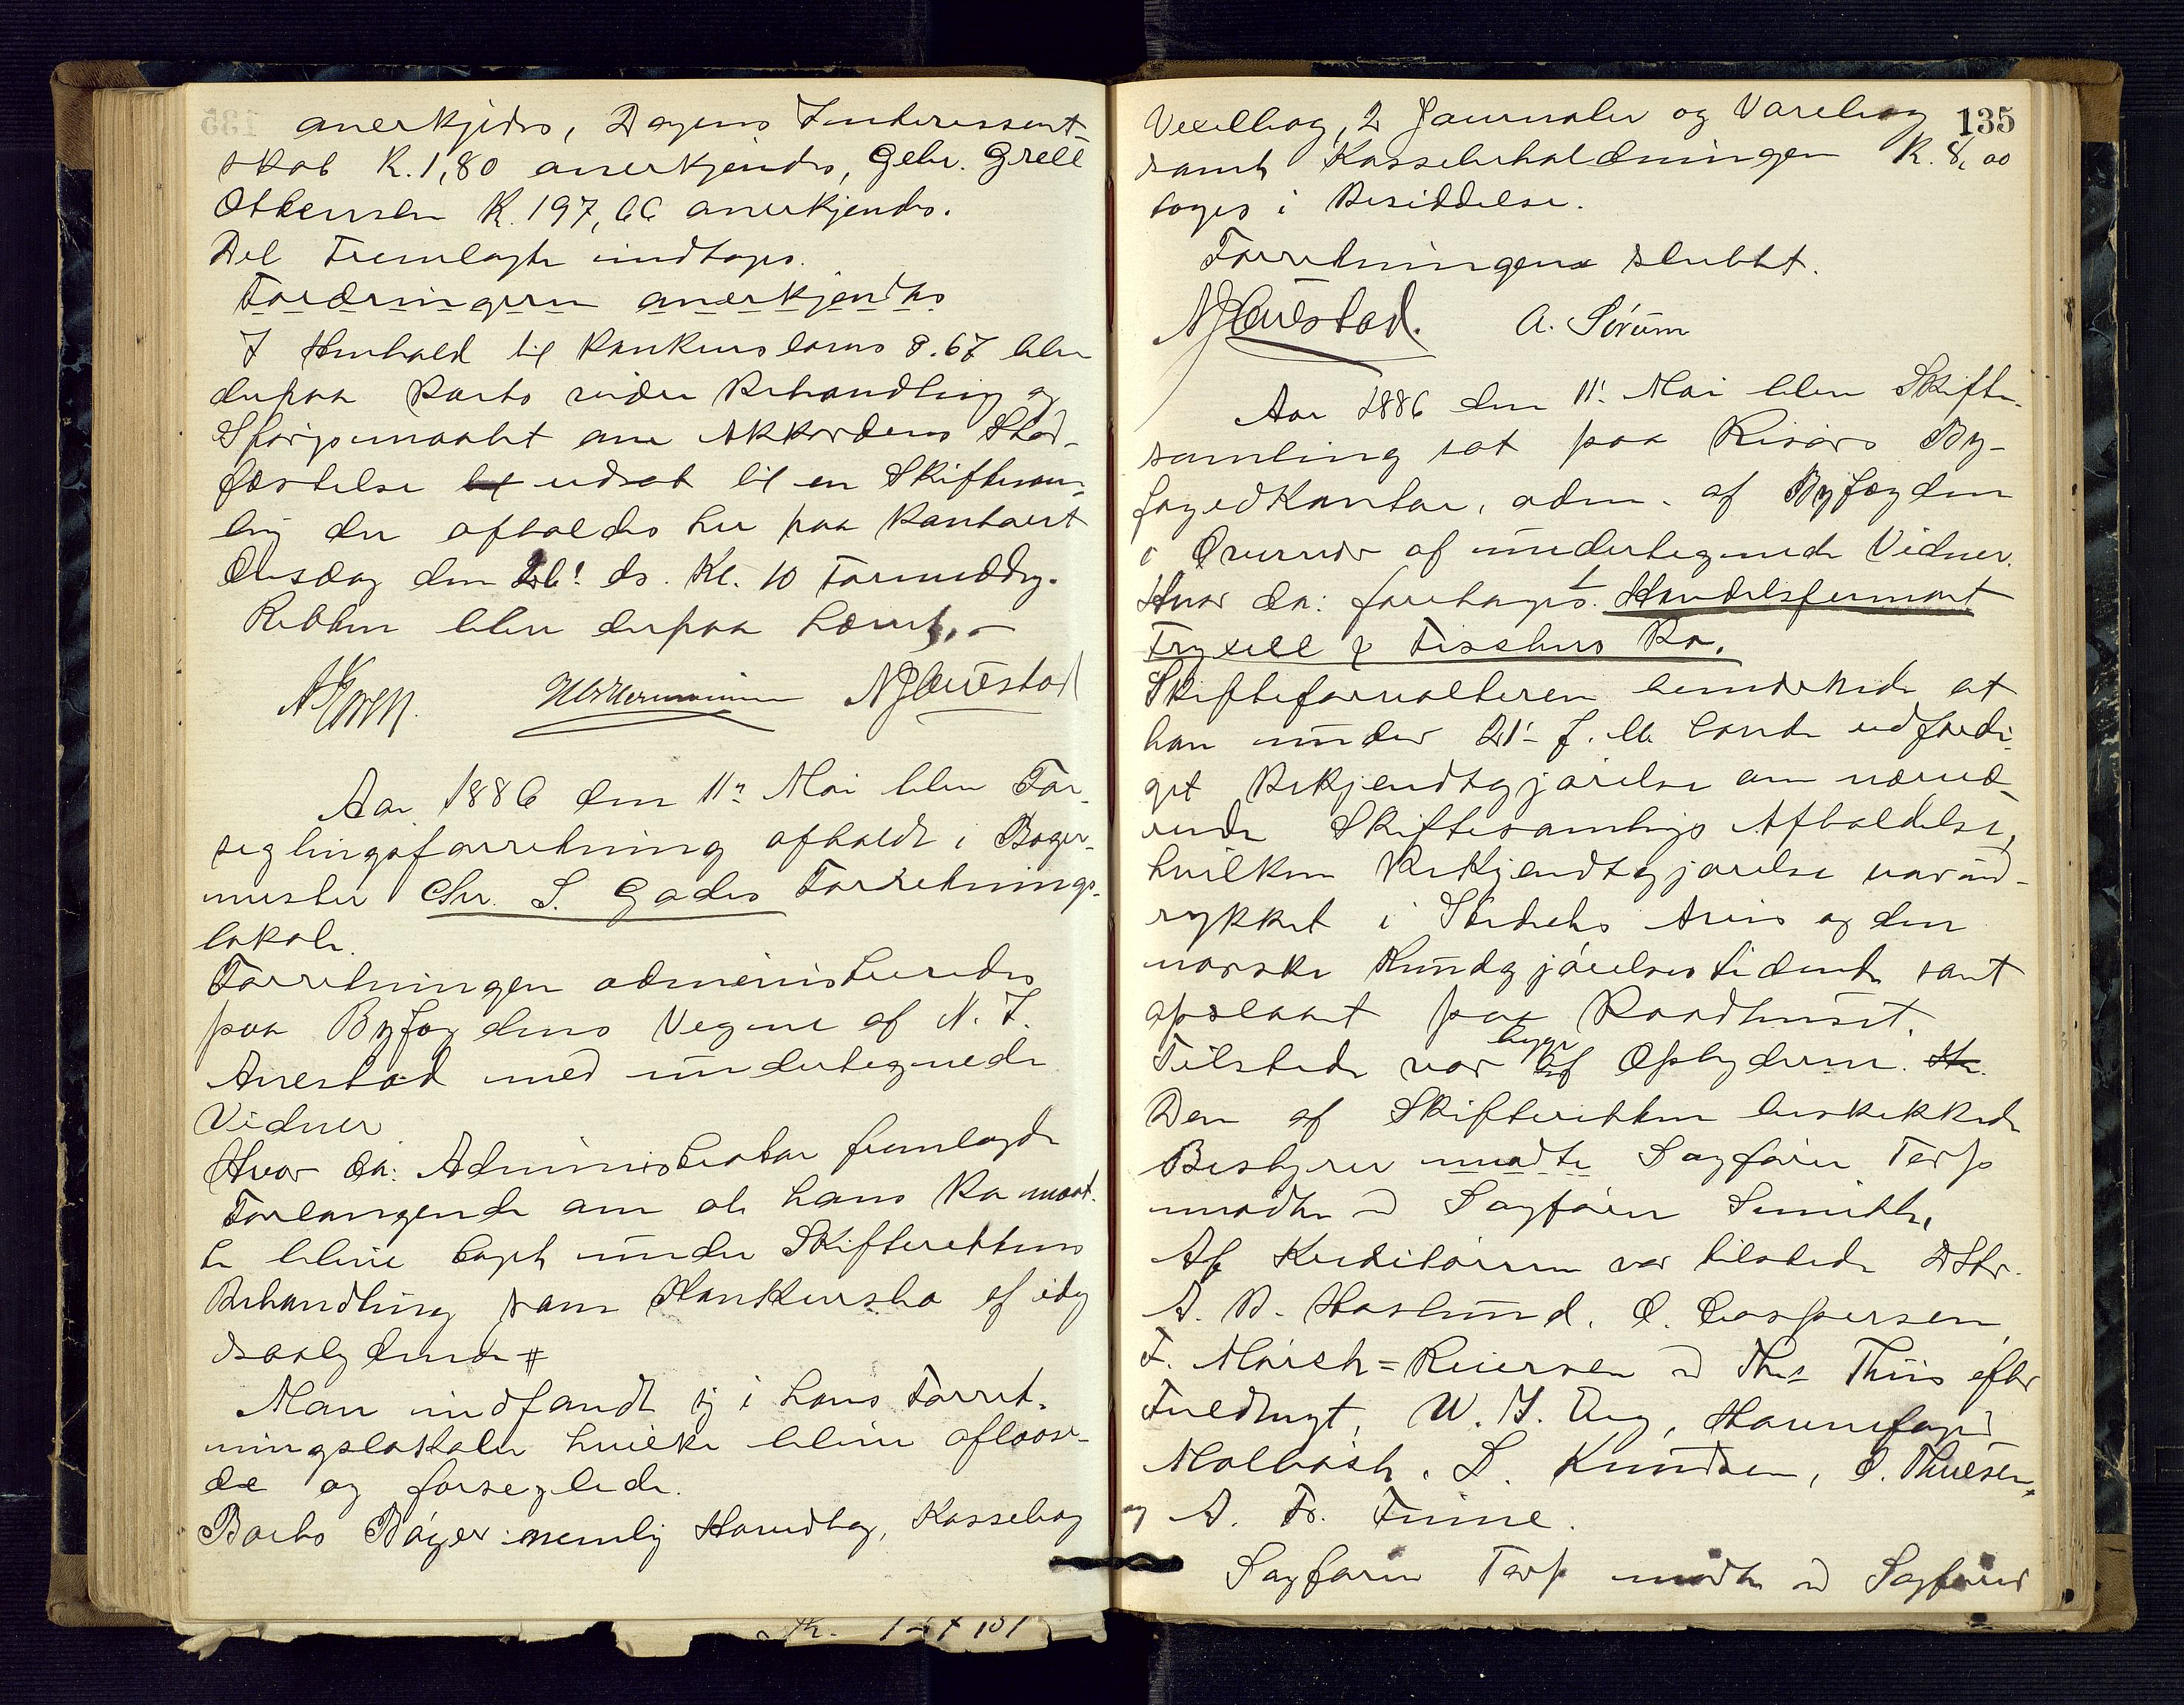 anerkjendes, Dagens Interessent-
skab K. 1,80 anerkjendes, Gebr. Grell
Ottensen K. 197,66 anerkjendes.
Det Fremlagte indtages.
Fordringerne anerkjendtes
I Henhold til Konkurslovens §. 67 blev
derpaa Boets videre Behandling og
Spørgsmaalet om Akkordens Stad-
fæstelse udsat til en Skiftesam-
ling der afholdes her paa Kontoret
Onsdag den 26! ds. Kl. 10 Formiddag.
Retten blev derpaa hævet. –
N J Auestad
Aar 1886 den 11te Mai blev For-
seglingsforretning afholdt i Bager-
mester Chr. S. Gades Forretnings-
lokale.
Forretningen administreredes
paa Byfogdens Vegne af N. J.
Auestad med undertegnede
Vidner
Hvor da: Administrator fremlagde
Forlangende om at hans Bo maat-
te blive tagt under Skifterettens
Behandling som Konkursbo af idag
saalydende #
Man indfandt sig i hans Forret-
ningslokaler hvilke bleve aflaase-
de og forseglede.
Boets Bøger nemlig Hovedbog, Kassebog
135
Vexelbog, 2 Journaler og Varebog
samt Kassebeholdningen K. 8,00
toges i Besiddelse.
Forretningen sluttet.
N J Auestad. A. Sørum
Aar 1886 den 11! Mai blev Skifte-
samling sat paa Risørs By-
fogedkontor, adm. af Byfogden
i Overvær af undertegnede Vidner.
Hvor da: foretoges. Handelsfirmaet
Fryxell & Tisshers Bo.
Skifteforvalteren bemærkede at
han under 21! f. M. havde udfærdi-
get Bekjendtgjørelse om nærvæ-
rende Skiftesamlings Afholdelse,
hvilken Bekjendtgjørelse var ind-
rykket i Stedets Avis og den
norske Kundgjørelsestidende samt
opslaaet paa Raadhuset.
Tilstede var begge af Opbyderne.
Den af Skifteretten beskikkede
Bestyrer mødte Sagfører Terp
mødte ved Sagfører Smith.
Af Kreditorerne var tilstede DHr.
A. B. Haslund, O. Caspersen,
F. Mørch=Reiersen ved Ths Thiis efter
Fuldmagt, W. J. Aug, Havnefoged
Malbøch, S. Knudsen, O. Thuesen,
og A. Fr. Finne.
Sagfører Terp mødte ved Sagfører